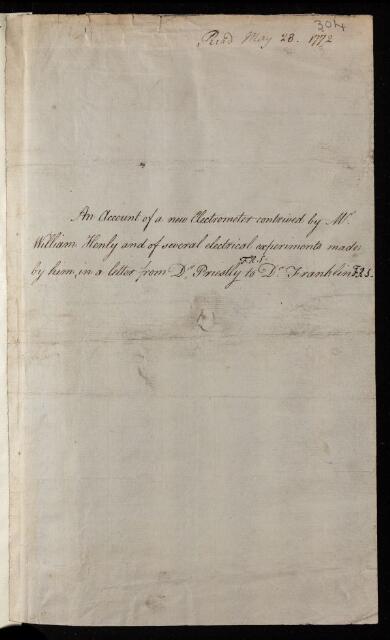 304
Read May 28. 1772
An Account of a new Electrometer contrived by Mr.
William Henly and of several electrical experiments made
F.R.S.
by him, in a letter from Dr. Priestly to Dr. Franklin F.R.S.